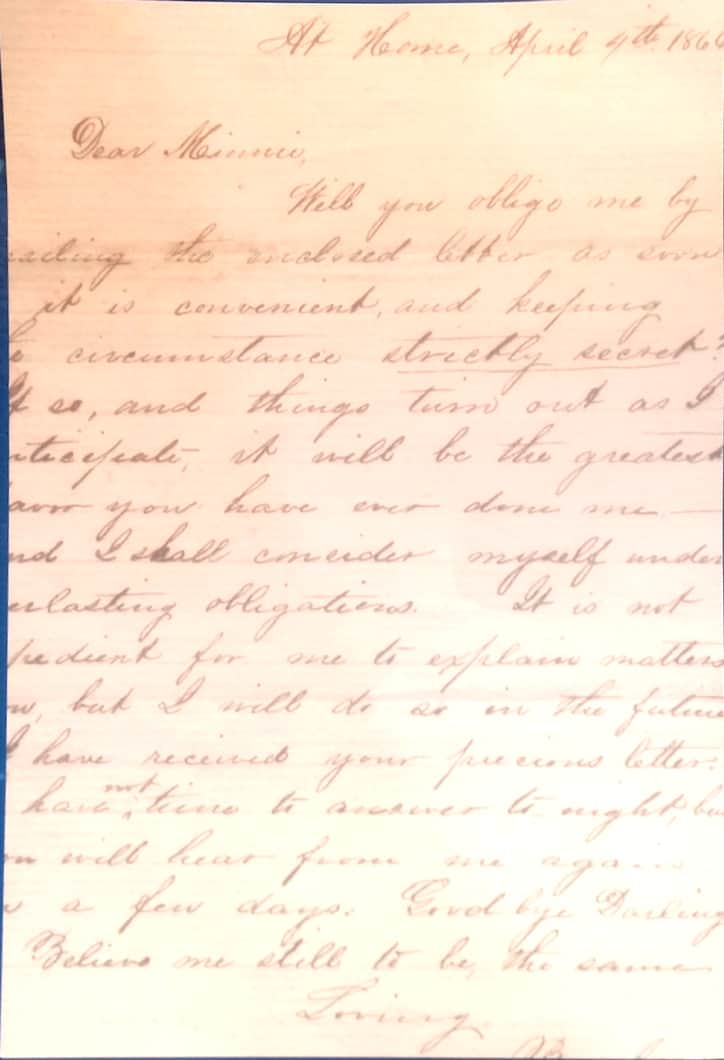 At Home, April 9th 186
Dear Minnie,
Will you oblige me by
ailing the enclosed letter as soon
it is convenient, and keeping
circumstance strictly secret?
If so, and things turn out as I
nticipate, it will be the greatest
avor you have ever done me —
nd I shall consider myself under
erlasting obligations. It is not
pedient for me to explain matters
ow, but I will do so in the future
I have received your precious letter.
have not time to answer to-night, bu
ou will hear from me again
n a few days. Good bye Darling
Believe me still to be, the same
Loving